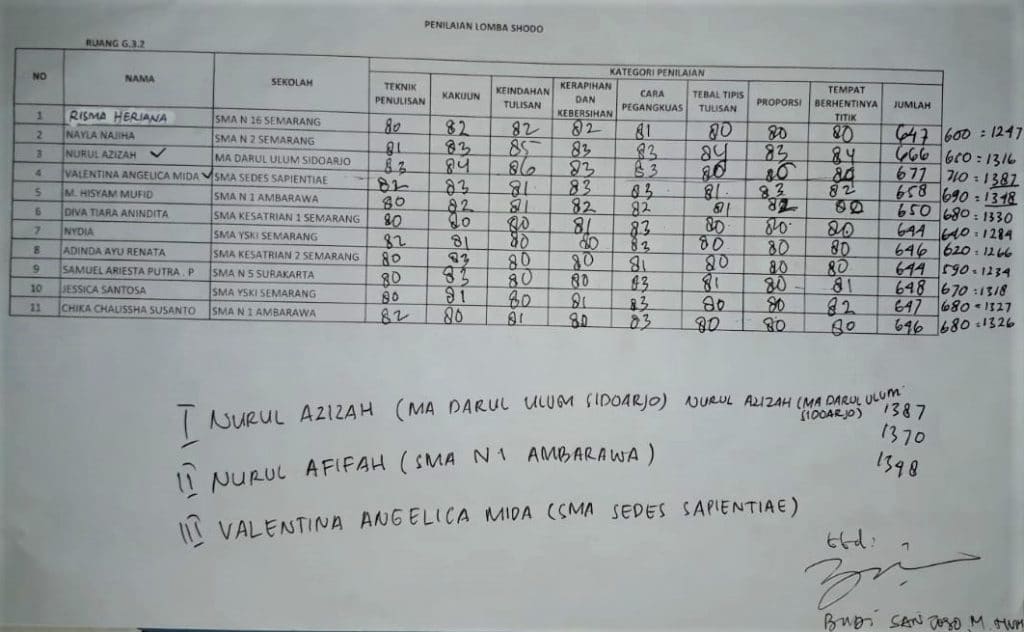 PENILAIAN LOMBA SHODO
RUANG G.3.2
NO NAMA SEKOLAH KATEGORI PENILAIAN JUMLAH
TEKNIK PENULISAN KAKUUN KEINDAHAN TULISAN KERAPIHAN DAN KEBERSIHAN CARA PEGANGKUAS TEBAL TIPIS TULISAN PROPORSI TEMPAT BERHENTINYA TITIK
1 RISMA HERIANA SMA N 16 SEMARANG 80 82 82 82 81 80 80 80 647 600 = 1247
2 NAYLA NAJIHA SMA N 2 SEMARANG 81 83 85 83 83 84 83 84 666 650 = 1316
3 NURUL AZIZAH ✓ MA DARUL ULUM SIDOARJO 83 84 86 83 83 80 80 677 710 = 1387
4 VALENTINA ANGELICA MIDA ✓ SMA SEDES SAPIENTIAE 82 83 81 83 83 81 83 82 658 690 = 1348
5 M. HISYAM MUFID SMA N 1 AMBARAWA 80 82 81 82 82 81 82 80 650 680 = 1330
6 DIVA TIARA ANINDITA SMA KESATRIAN 1 SEMARANG 80 80 80 81 83 80 80 80 644 640 = 1284
7 NYDIA SMA YSKI SEMARANG 82 81 80 80 83 80 80 80 646 620 = 1266
8 ADINDA AYU RENATA SMA KESATRIAN 2 SEMARANG 80 83 80 80 81 80 80 80 644 590 = 1234
9 SAMUEL ARIESTA PUTRA . P SMA N 5 SURAKARTA 80 83 80 80 83 81 80 81 648 670 = 1318
10 JESSICA SANTOSA SMA YSKI SEMARANG 80 81 80 81 83 80 80 82 647 680 = 1327
11 CHIKA CHAUSSHA SUSANTO SMA N 1 AMBARAWA 82 80 81 80 83 80 80 80 646 680 = 1326
I NURUL AZIZAH (MA DARUL ULUM SIDOARJO) NURUL AZIZAH (MA DARUL ULUM SIDOARJO) 1387
1370
II NURUL AFIFAH (SMA N 1 AMBARAWA)
1348
III VALENTINA ANGELICA MIDA (SMA SEDES SAPIENTIAE)
ttd:
BUDI SANTOSO, M. HUM